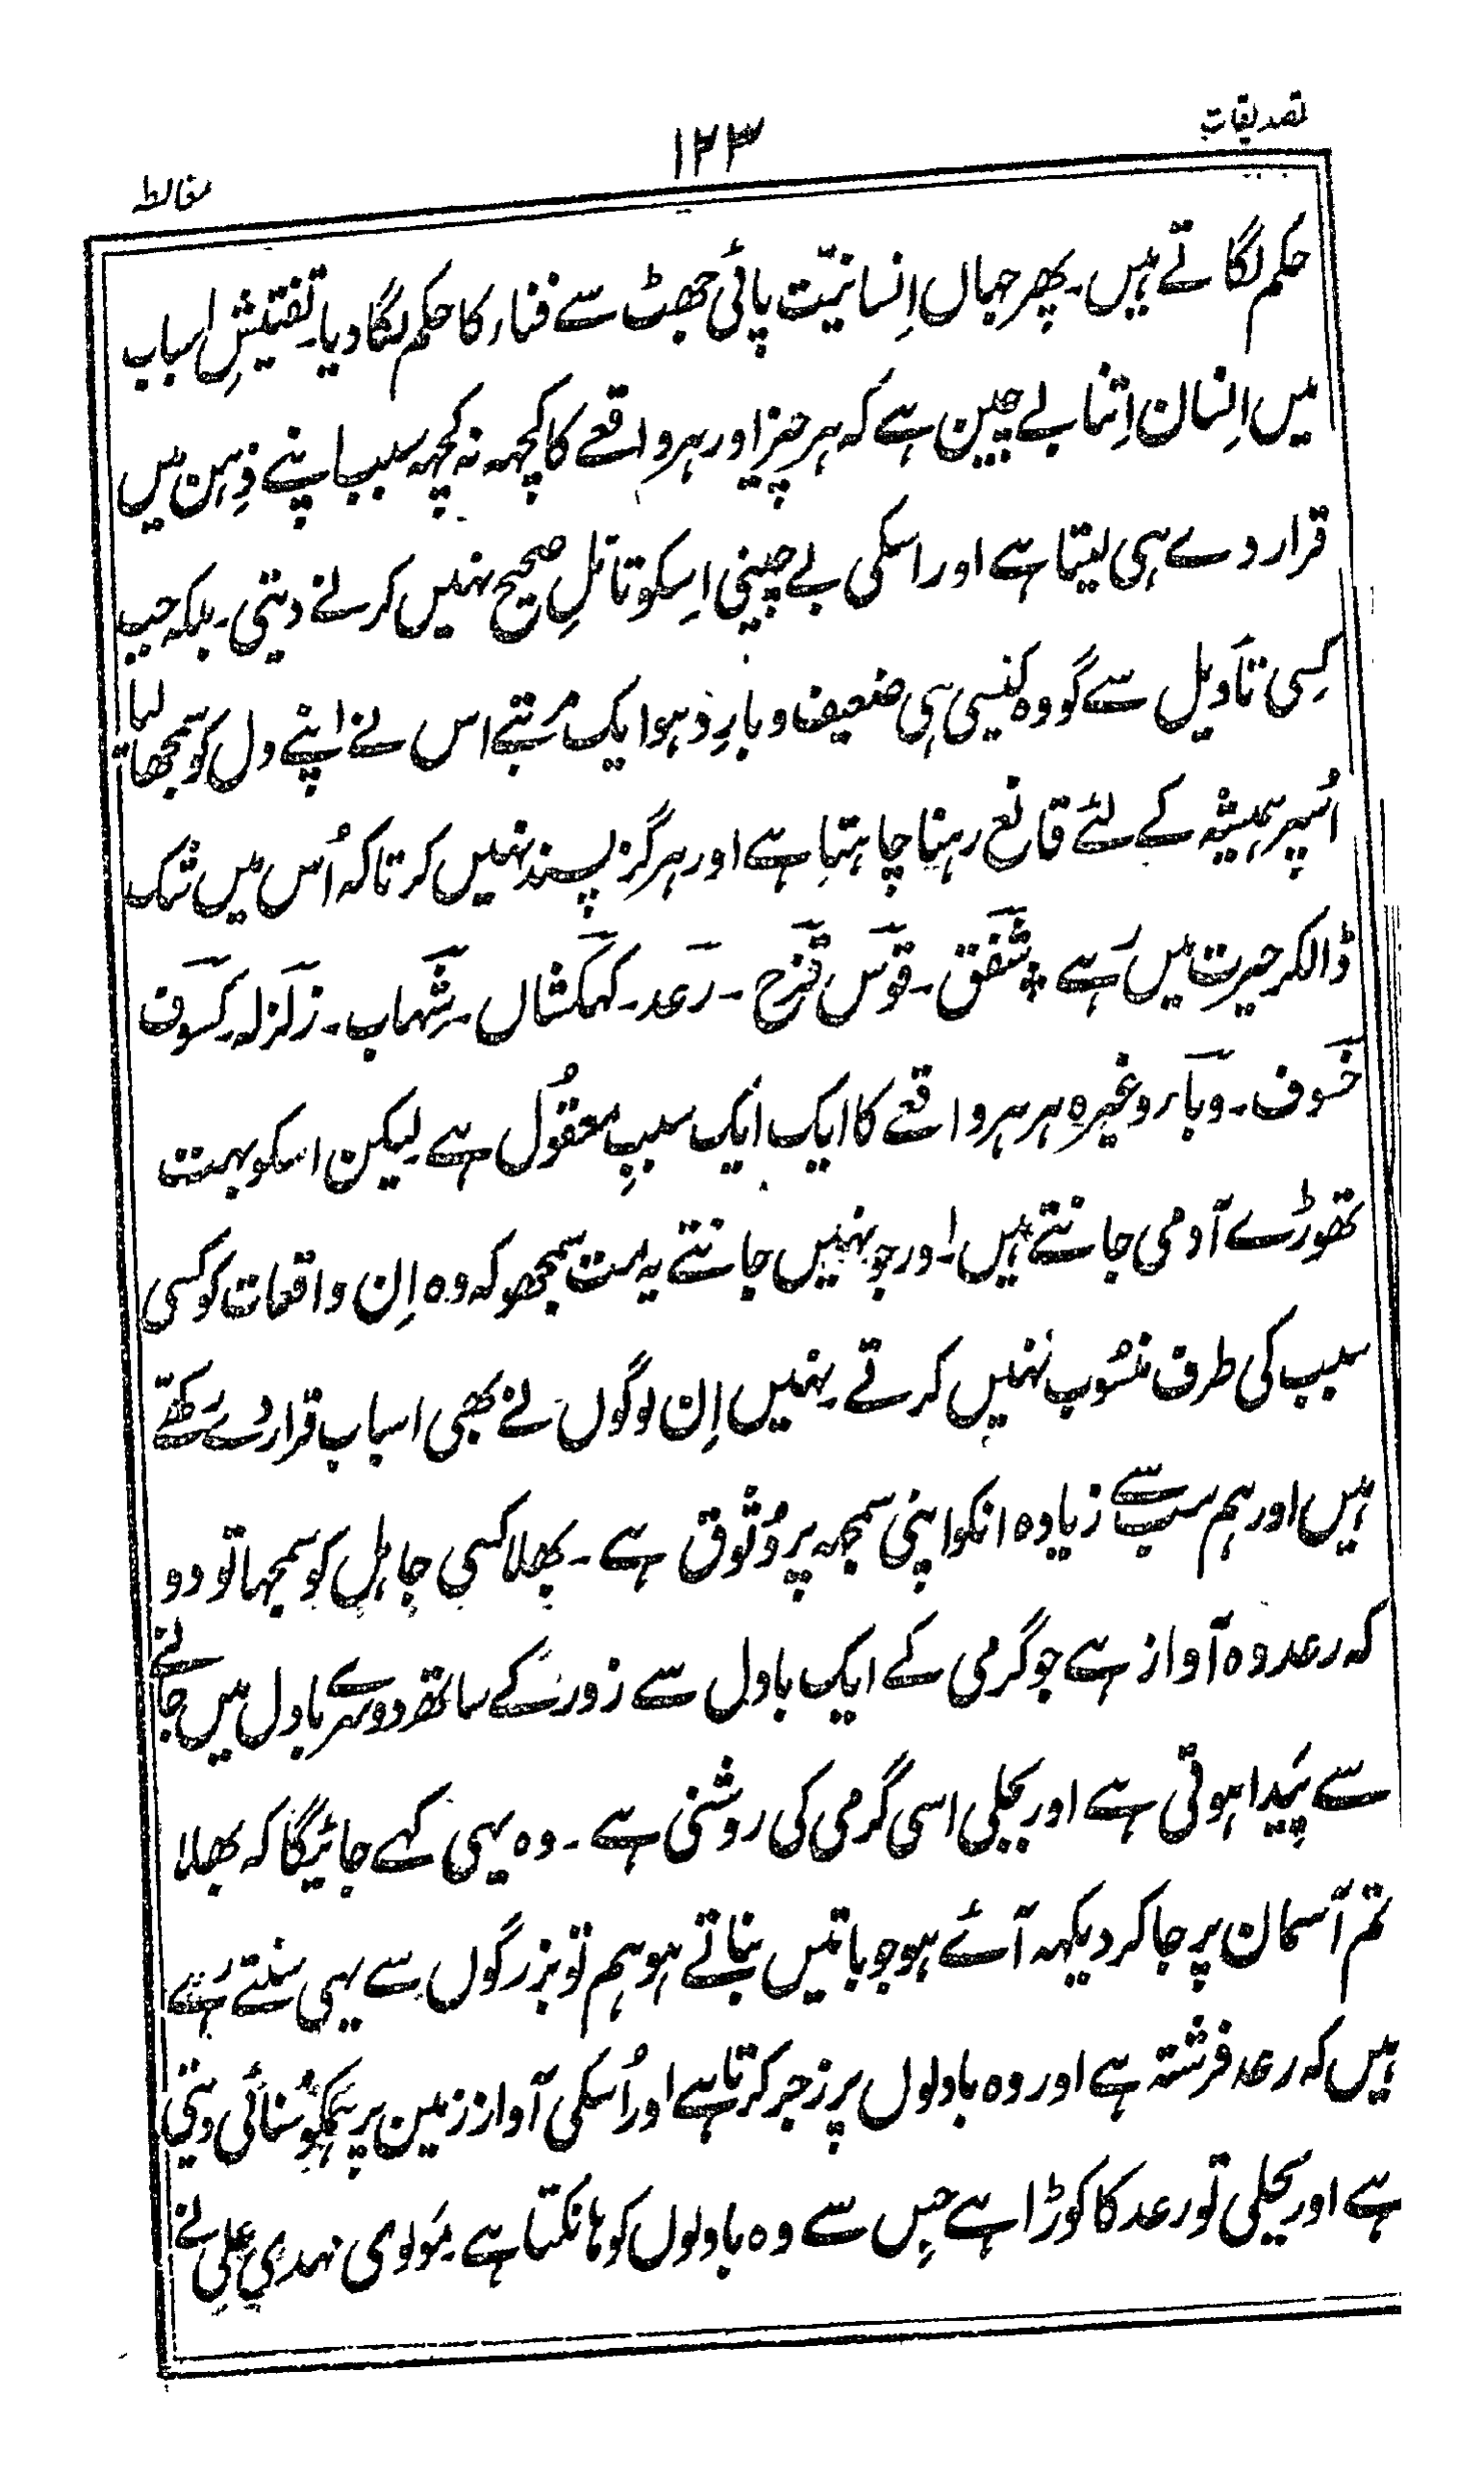 تصدیقات
۱۲۳
مغالطہ
حکم لگاتے ہیں۔ پھر جہاں اِنسانیّت پائی جھٹ سے فناء کا حکم لگا دیا۔ تفتیشِ اسباب
میں اِنسان اِتنا بے چین ہے کہ ہر چیز اور ہر واقعے کا کچھہ نہ کچھہ سبب اپنے ذِہن میں
قرار دے ہی لیتا ہے اور اسکی بے چینی اِسکو تاملِ صحیح نہیں کرنے دیتی۔ بلکہ جب
کِسی تاَویل سے گو وہ کَیسی ہی ضعیف و بارِد ہو ایک مرتبے اس نے اپنے دل کو سمجھا لیا
اُسپر ہمیشہ کے لئے قانع رہنا چاہتا ہے اور ہرگز پسند نہیں کرتا کہ اُس میں شک
ڈالکر حیرت میں رَہے ٭ شَفَق۔ قَوس قَزح۔ رَعد۔ کہکشاں۔ شِہاب۔ زلزلہ۔ کسوف
خسوف۔ وَباء وغیرہ ہر ہر واقعے کا ایک ایک سببِ معقُول ہے۔ لیکن اسکو بہت
تھوڑے آدمی جانتے ہیں۔ اور جو نہیں جانتے یہ مت سمجھو کہ وہ اِن واقعات کو کسی
سبب کی طرف منسُوب نہیں کرتے۔ نہیں اِن لوگوں نے بھی اسباب قرار دے رَکھّے
ہیں اور ہم سب سے زیادہ انکو اپنی سمجھہ پر وُثوق ہے۔ بھلا کسی جاہل کو سمجھا تو دو
کہ رعد وہ آواز ہے جو گرمی کے ایک بادل سے زور کے ساتھ دوسرے بادل میں جانے
سے پَیدا ہوتی ہے اور بجلی اسی گرمی کی روشنی ہے۔ وہ یہی کہے جائیگا کہ بھلا
تم آسمان پر جا کر دیکھہ آئے ہو جو باتیں بناتے ہو ہم تو بزرگوں سے یہی سنتے رَہے
ہیں کہ رعد فرشتہ ہے اور وہ بادلوں پر زجر کرتا ہے اور اُسکی آواز زمین پر ہمکو سُنائی دیتی
ہے اور بجلی تو رعد کا کوڑا ہے جِس سے وہ بادلوں کو ہانکتا ہے۔ مَولوی مہدی علی نے